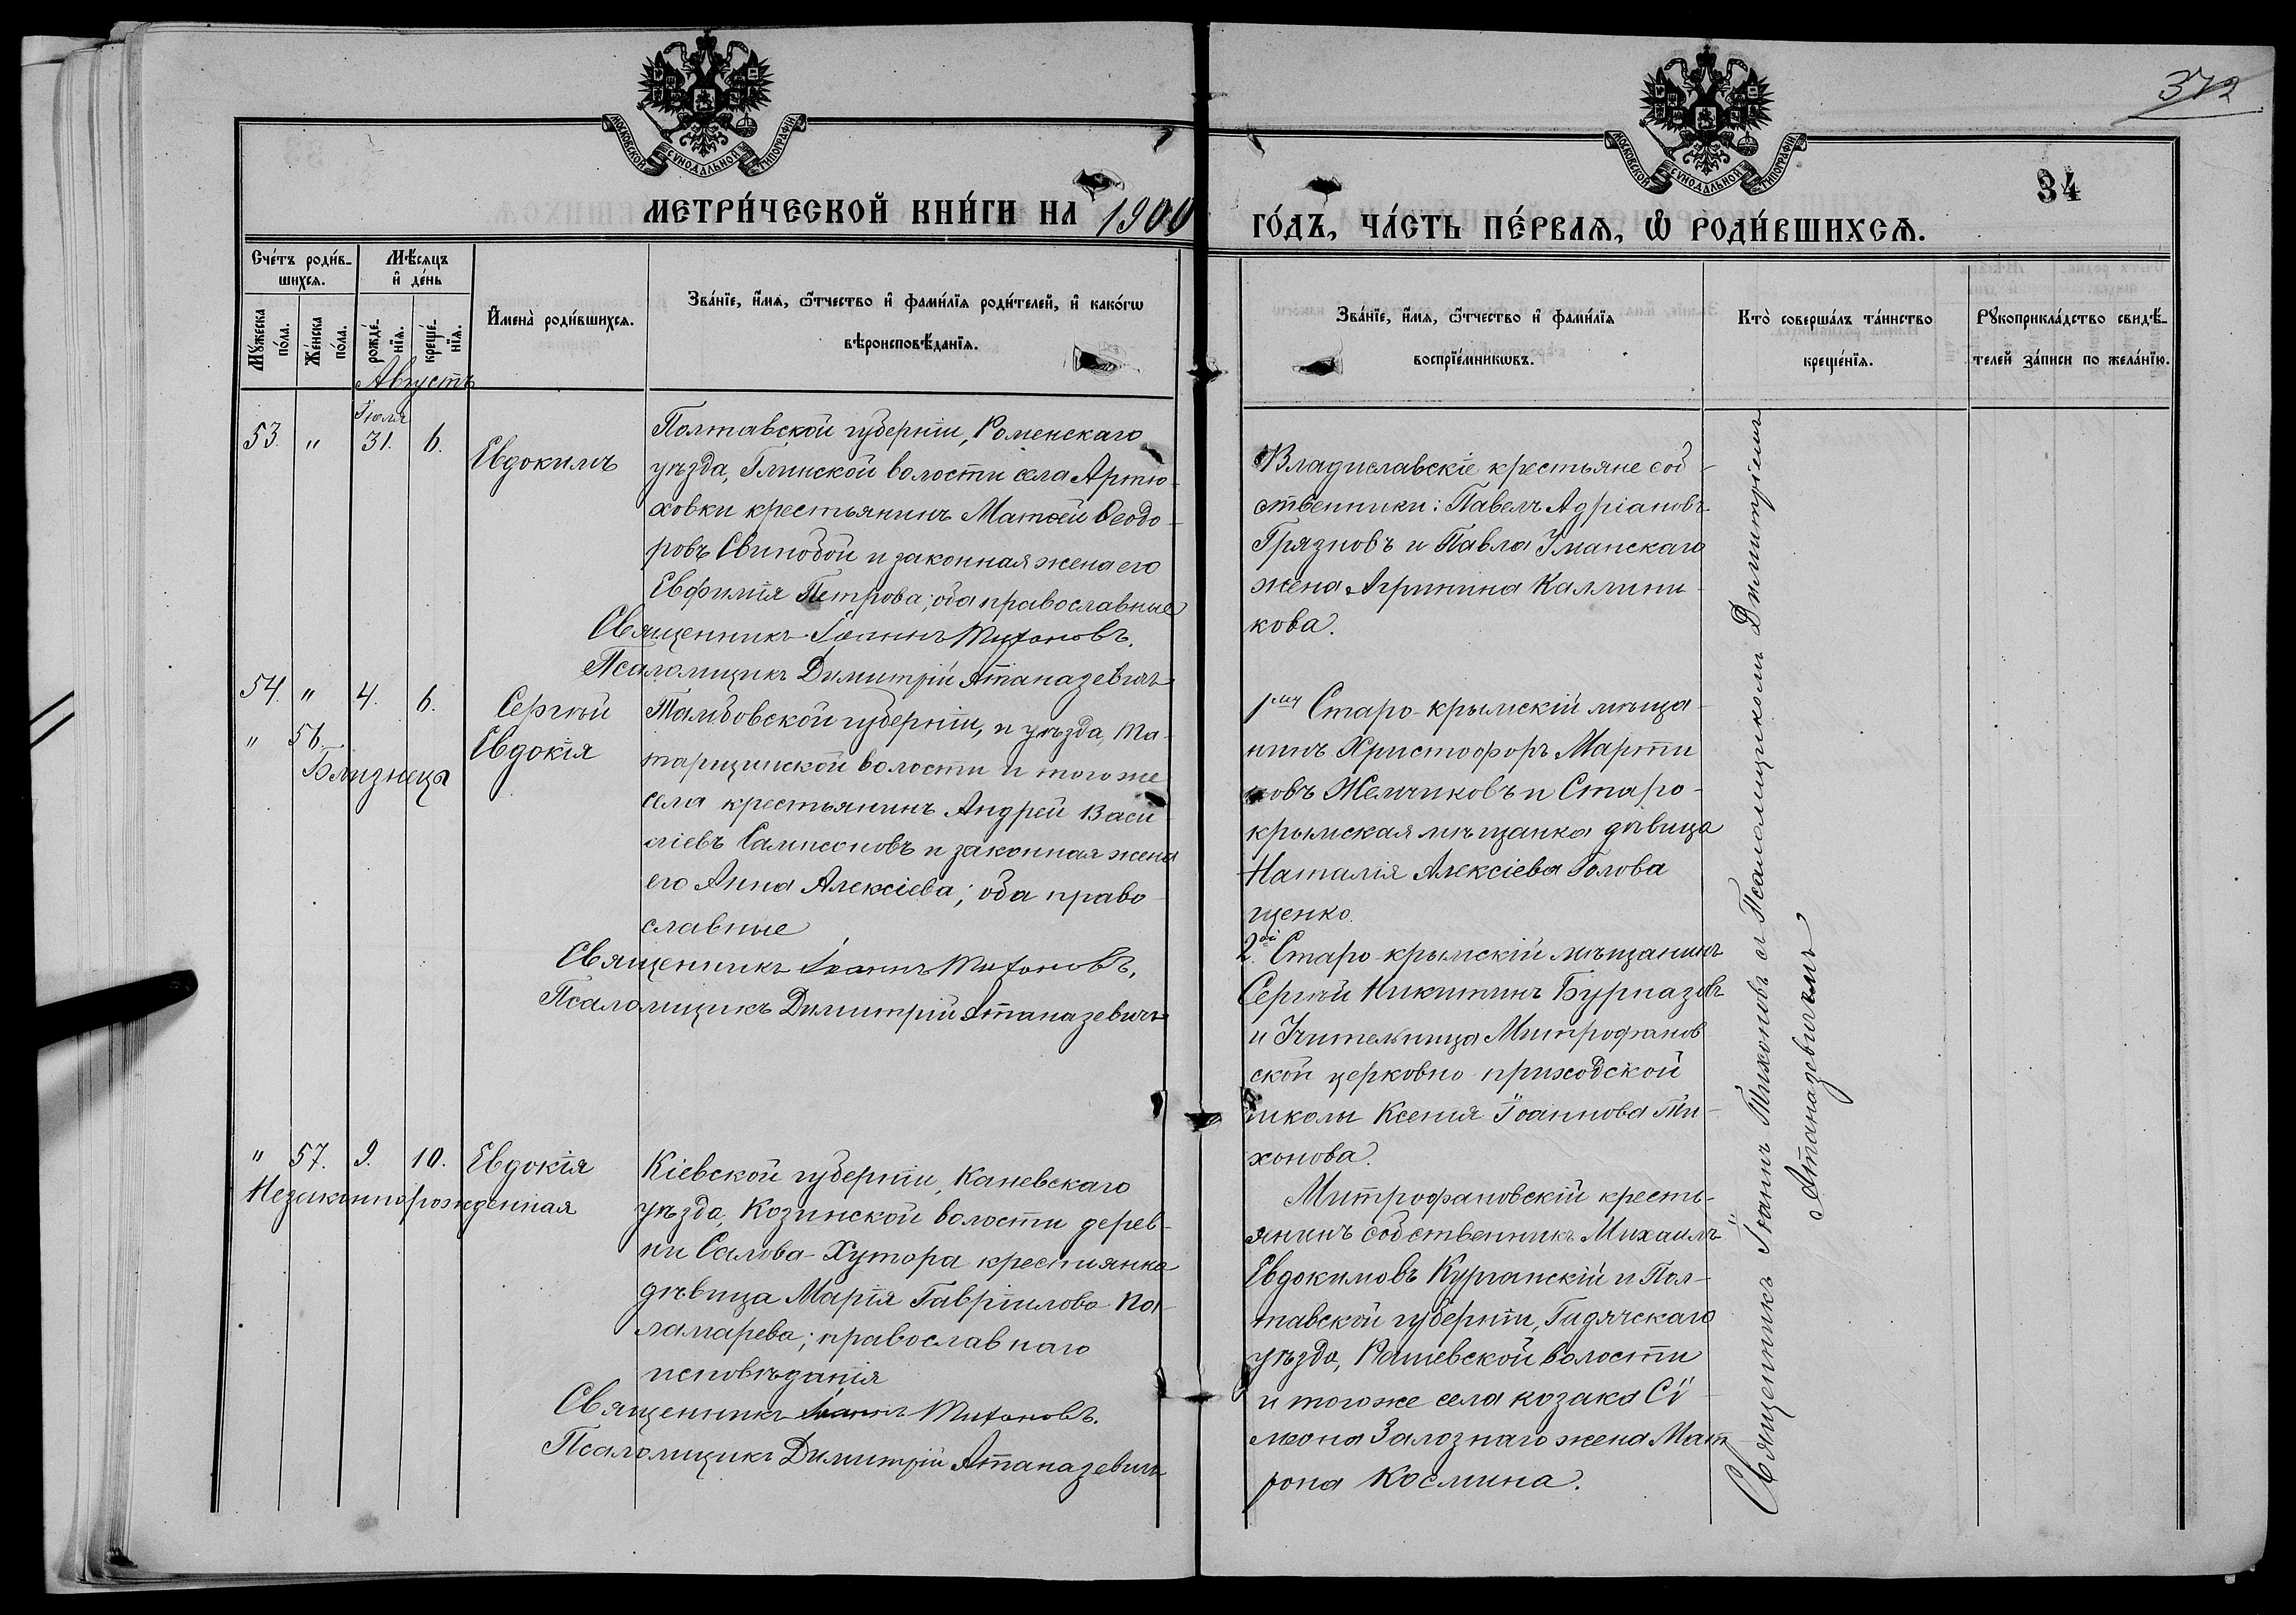 372
34
МОСКОВСКОЙ СУНОДАЛЬНОЙ ТИПОГРАФІИ
МОСКОВСКОЙ СУНОДАЛЬНОЙ ТИПОГРАФІИ
МЕТРИ́ЧЕСКОЙ КНИ́ГИ НА 1900
ГО́ДЪ, ЧА́СТЬ ПЕ́РВАѦ, Ѡ҆ РОДИ́ВШИХСѦ.
Сче́тъ роди́в-
шихсѧ.
Мꙋ́жеска по́ла.
Же́нска по́ла.
Мѣ́сѧцъ
и҆ де́нь
рожде́-нїѧ.
креще́-нїѧ.
И҆мена̀ роди́вшихсѧ.
Зва́нїе, и҆́мѧ, ѻ҆́тчество и҆ фами́лїѧ роди́телей, и҆ како́гѡ
вѣроисповѣ́данїѧ.
Зва́нїе, и҆́мѧ, ѻ҆́тчество и҆ фами́лїѧ
воспрїе́мникѡвъ.
Кто̀ соверша́лъ та́инство
креще́нїѧ.
Рꙋкоприкла́дство свидѣ́-
телей за́писи по жела́нїю.
Августъ
Іюля
53. " 31. 6. Евдокимъ
Полтавской губерніи, Роменскаго
уѣзда, Глинской волости села Артю-
ховки крестьянинъ Матѳей Ѳеодо-
ровъ Свинобой и законная жена его
Евфимія Петрова; оба православные
Священникъ Іоаннъ Тихоновъ.
Псаломщикъ Димитрій Атаназевичъ
Владиславскіе крестьяне соб-
ственники: Павелъ Адріановъ
Грязновъ и Павла Уманскаго
жена Агрипина Каллини-
кова.
54. " 4. 6. Сергѣй
" 56. Евдокія
Близнецы
Тамбовской губерніи, и уѣзда, Та-
тарщинской волости и того же
села крестьянинъ Андрей Васи-
ліевъ Сампсоновъ и законная жена
его Анна Алексіева; оба право-
славные
Священникъ Іоаннъ Тихоновъ.
Псаломщикъ Димитрій Атаназевичъ
1му Старо-крымскій мѣща-
нинъ Христофоръ Марти
новъ Желчиковъ и Старо-
крымская мѣщанка дѣвица
Наталія Алексіева Голова
щенко.
2ой Старо-крымскій мѣщанинъ
Сергѣй Никитинъ Бурназовъ
и Учительница Митрофанов
ской церковно приходской
школы Ксенія Іоаннова Ти-
хонова.
" 57. 9. 10. Евдокія
Незаконнорожденная
Кіевской губерніи, Каневскаго
уѣзда, Козинской волости дерев-
ни Салова-Хутора крестьянка
дѣвица Марія Гавріилова По-
ламарева; православнаго
исповѣданія
Священникъ Іоаннъ Тихоновъ.
Псаломщикъ Димитрій Атаназевичъ
Митрофановскій кресть-
янинъ собственникъ Михаилъ
Евдокимовъ Курганскій и Пол-
тавской губерніи, Гадячскаго
уѣзда, Рашевской волости
и того же села козака Сѵ-
меона Залознаго жена Мат-
рона Космина.
Священникъ Іоаннъ Тихоновъ съ Псаломщикомъ Димитріемъ
Атаназевичемъ